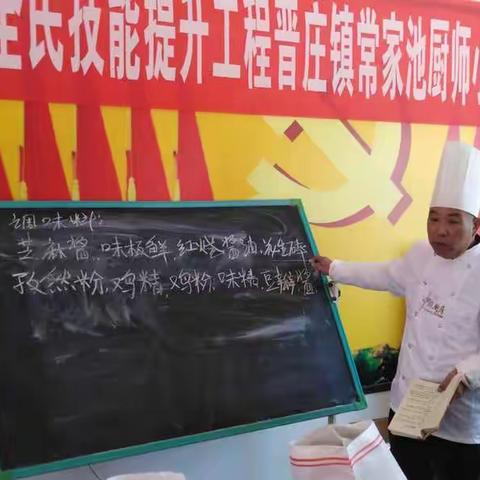 全民技能提升工程晋庄镇常家池厨师
调味料:
芝麻酱,味极鲜,红烧酱油,
孜然粉,鸡精,鸡粉,味精,豆瓣酱